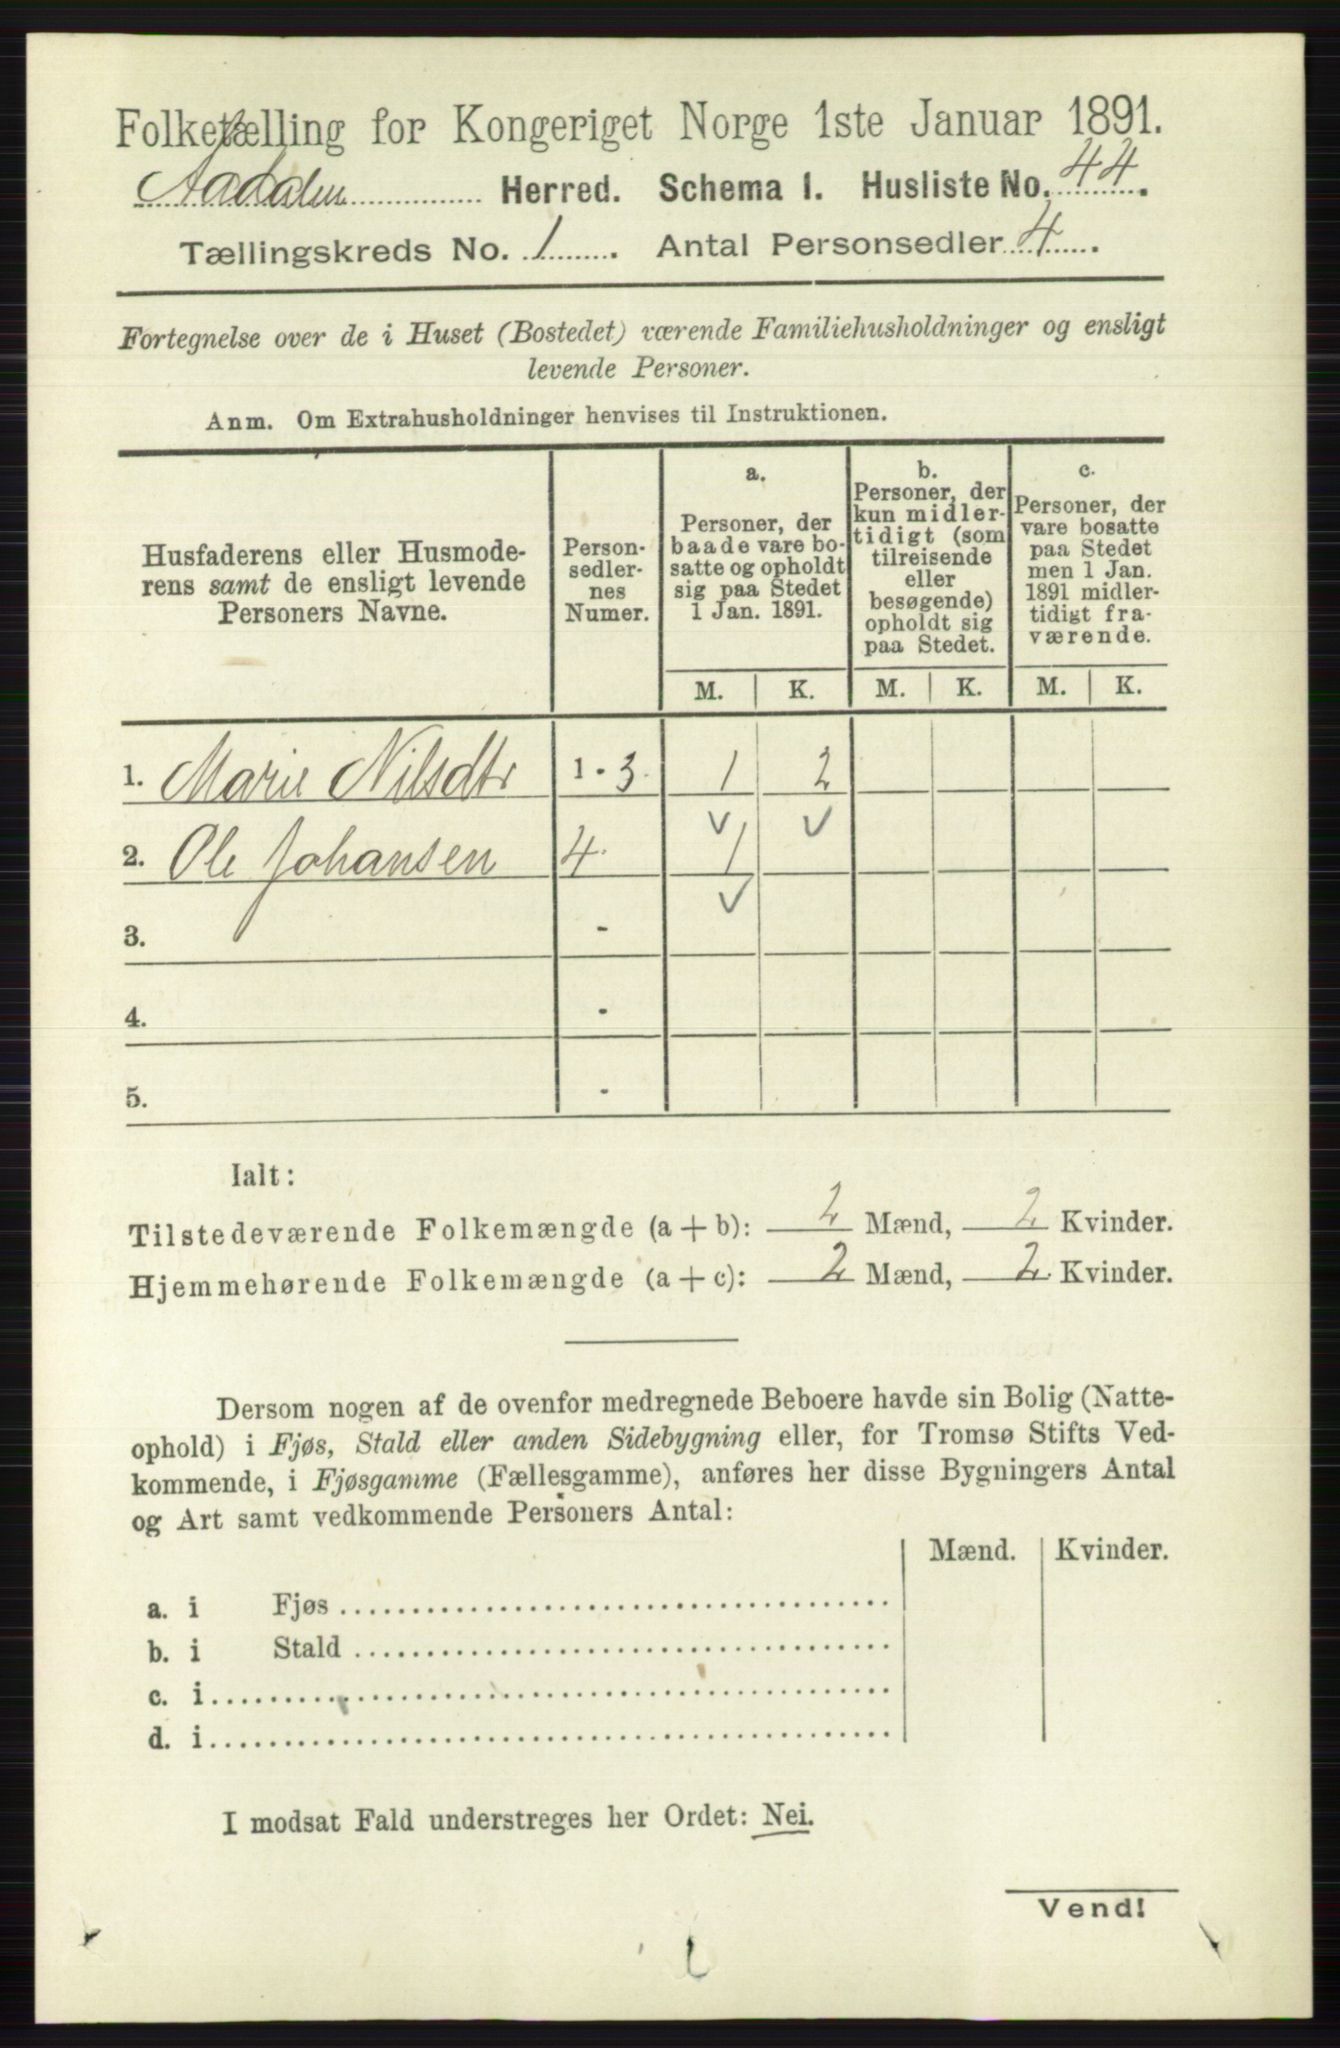 Folketælling for Kongeriget Norge 1ste Januar 1891.
Aadalen Herred. Schema 1. Husliste No. 44.
Tællingskreds No. 1. Antal Personsedler 4.
Fortegnelse over de i Huset (Bostedet) værende Familiehusholdninger og ensligt
levende Personer.
Anm. Om Extrahusholdninger henvises til Instruktionen.
Husfaderens eller Husmode-
rens samt de ensligt levende
Personers Navne.
Person-
sedler-
nes
Numer.
a.
Personer, der
baade vare bo-
satte og opholdt
sig paa Stedet
1 Jan. 1891.
b.
Personer, der
kun midler-
tidigt (som
tilreisende
eller
besøgende)
opholdt sig
paa Stedet.
c.
Personer, der
vare bosatte
paa Stedet
men 1 Jan.
1891 midler-
tidigt fra-
værende.
M. K. M. K. M. K.
1. Marie Nilsdtr 1 - 3. 1 2
2. Ole Johansen 4. 1
3. -
4. -
5. -
Ialt:
Tilstedeværende Folkemængde (a + b): 2 Mænd, 2 Kvinder.
Hjemmehørende Folkemængde (a + c): 2 Mænd, 2 Kvinder.
Dersom nogen af de ovenfor medregnede Beboere havde sin Bolig (Natte-
ophold) i Fjøs, Stald eller anden Sidebygning eller, for Tromsø Stifts Ved-
kommende, i Fjøsgamme (Fællesgamme), anføres her disse Bygningers Antal
og Art samt vedkommende Personers Antal:
Mænd. Kvinder.
a. i Fjøs
b. i Stald
c. i
d. i
I modsat Fald understreges her Ordet: Nei.
Vend!